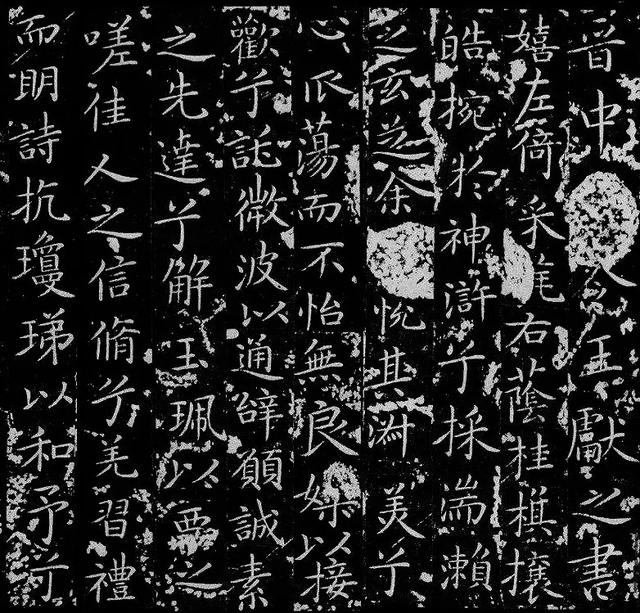 晉中令王獻之書
嬉左倚采旄右蔭桂棋攘
皓捥於神滸兮採湍瀨
之玄芝余悅其淑美兮
心爪蕩而不怡無良媒以接
歡兮託微波以通辭願誠素
之先達兮解玉珮以要之
嗟佳人之信脩兮羌習禮
而明詩抗瓊珶以和予兮